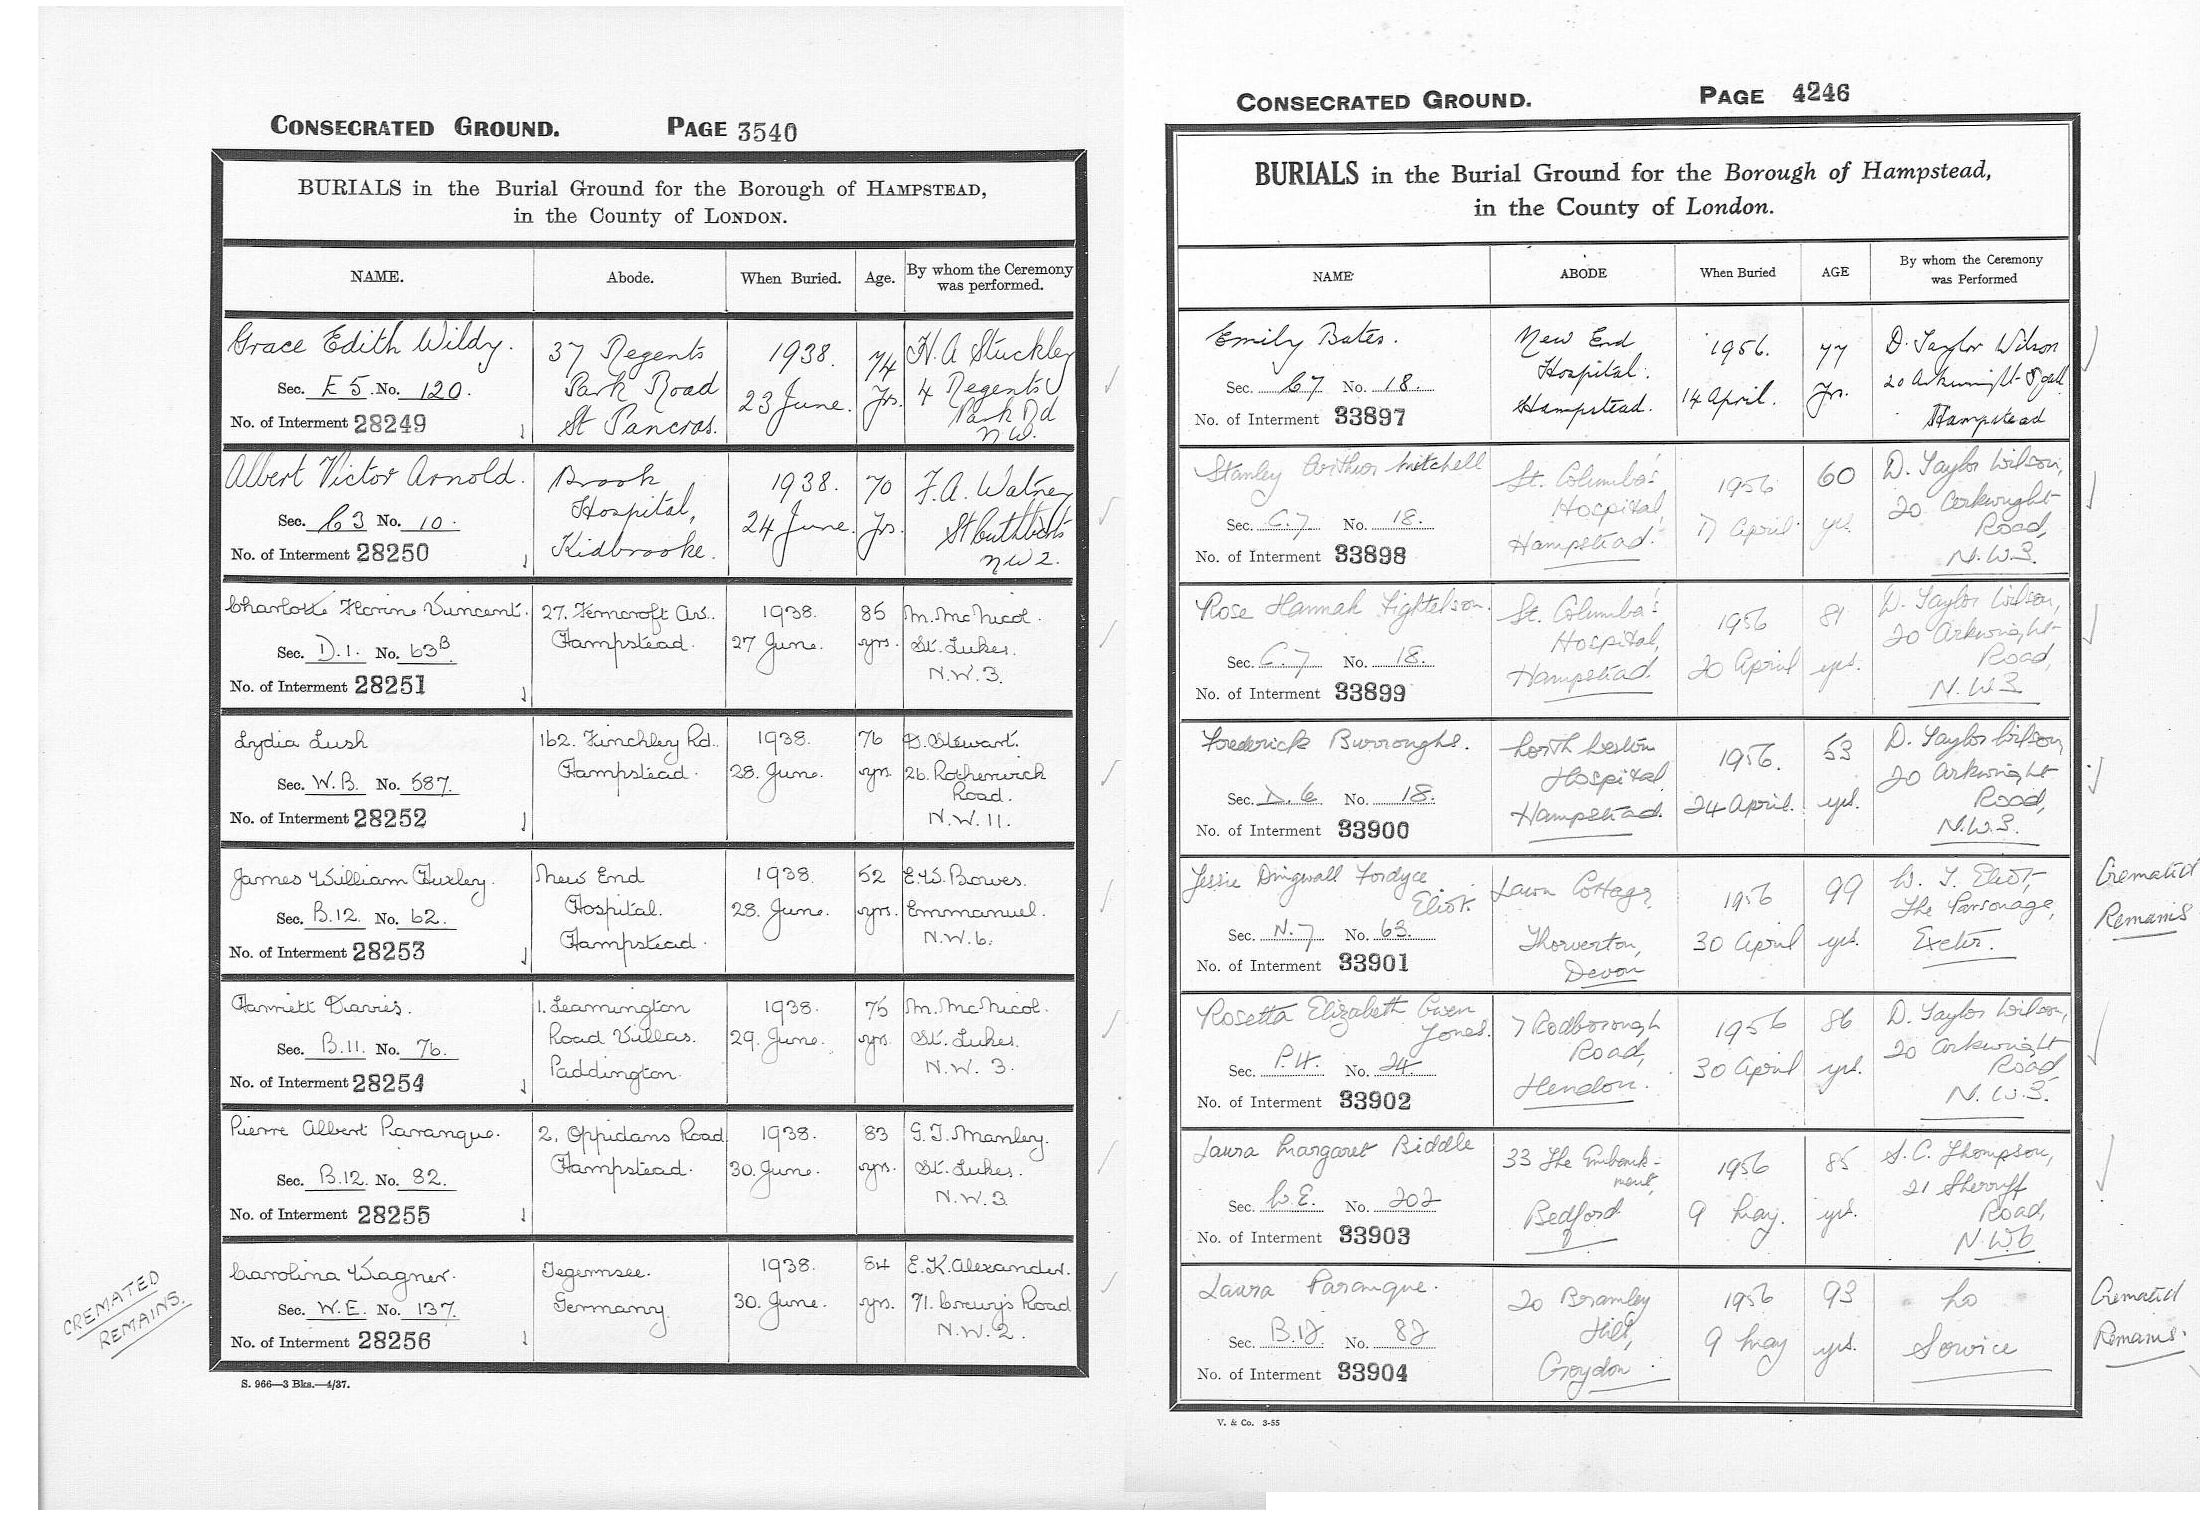 CONSECRATED GROUND. PAGE 3540
BURIALS in the Burial Ground for the Borough of HAMPSTEAD,
in the County of LONDON.
NAME. Abode. When Buried. Age. By whom the Ceremony was performed.
Grace Edith Wildy.
Sec. E 5. No. 120.
No. of Interment 28249
37 Regents
Park Road
St Pancras.
1938.
23 June.
74
Yrs.
H. A Stuckley
4 Regents
Park Rd
N.W.
Albert Victor Arnold.
Sec. C 3 No. 10.
No. of Interment 28250
Brook
Hospital,
Kidbrooke.
1938.
24 June.
70
Yrs.
F. A. Watney
St Cuthberts
NW 2.
Charlotte Florine Vincent.
Sec. D.1. No. 63B
No. of Interment 28251
27. Ferncroft Av.
Hampstead.
1938.
27 June.
85
yrs.
M. McNicol.
St. Lukes.
N.W. 3.
Lydia Lush
Sec. W.B. No. 587.
No. of Interment 28252
162. Finchley Rd.
Hampstead.
1938.
28. June.
76
yrs.
D. Stewart.
26. Rotherwick
Road.
N.W. 11.
James William Huxley.
Sec. B.12. No. 62.
No. of Interment 28253
New End
Hospital.
Hampstead.
1938.
28. June.
52
yrs.
E.W. Bowes.
Emmanuel.
N.W. 6.
Harriett Davies.
Sec. B.11. No. 76.
No. of Interment 28254
1. Leamington
Road Villas.
Paddington.
1938.
29. June.
75
yrs.
M. McNicol.
St. Lukes.
N.W. 3.
Pierre Albert Paranque.
Sec. B.12. No. 82.
No. of Interment 28255
2. Oppidans Road
Hampstead.
1938.
30. June.
83
yrs.
G. T. Manley.
St. Lukes.
N.W. 3
CREMATED
REMAINS.
Carolina Wagner.
Sec. W.E. No. 137.
No. of Interment 28256
Tegernsee.
Germany.
1938.
30. June.
84
yrs.
E. K. Alexander.
71. Crewys Road
N.W. 2.
S. 966—3 Bks.—4/37.
CONSECRATED GROUND. PAGE 4246
BURIALS in the Burial Ground for the Borough of Hampstead,
in the County of London.
NAME ABODE When Buried AGE By whom the Ceremony was Performed
Emily Bates.
Sec. C7 No. 18.
No. of Interment 33897
New End
Hospital.
Hampstead.
1956.
14 April.
77
Yrs.
D. Taylor Wilson
20 Arkwright
Hampstead
Stanley Arthur Mitchell
Sec. C.7 No. 18.
No. of Interment 33898
St. Columba's
Hospital
Hampstead.
1956
17 April
60
yrs.
D. Taylor Wilson,
20 Arkwright
Road,
N.W3.
Rose Hannah Fightelson.
Sec. C.7 No. 18.
No. of Interment 33899
St. Columba's
Hospital,
Hampstead.
1956
20 April
81
yrs.
D. Taylor Wilson,
20 Arkwright
Road,
N.W3
Frederick Burroughs.
Sec. D. 6 No. 18.
No. of Interment 33900
North Western
Hospital
Hampstead.
1956.
24 April.
53
yrs.
D. Taylor Wilson,
20 Arkwright
Road,
N.W.3.
Jessie Dingwall Fordyce
Eliot.
Sec. N. 7 No. 63.
No. of Interment 33901
Lawn Cottage,
Thorverton,
Devon
1956
30 April
99
yrs.
W. T. Eliot,
The Parsonage,
Exeter.
Cremated
Remains
Rosetta Elizabeth Gwen
Jones.
Sec. P.4. No. 24
No. of Interment 33902
7 Rodborough
Road,
Hendon.
1956
30 April
86
yrs.
D. Taylor Wilson,
20 Arkwright
Road
N.W.3.
Laura Margaret Biddle
Sec. W.E. No. 202
No. of Interment 33903
33 The Embank-
ment,
Bedford
1956
9 May.
85
yrs.
S. C. Thompson,
21 Sherriff
Road,
N.W6
Laura Paranque.
Sec. B.12 No. 82
No. of Interment 33904
20 Bramley
Hill,
Croydon.
1956
9 May
93
yrs.
No
Service
Cremated
Remains.
V. & Co. 3-55